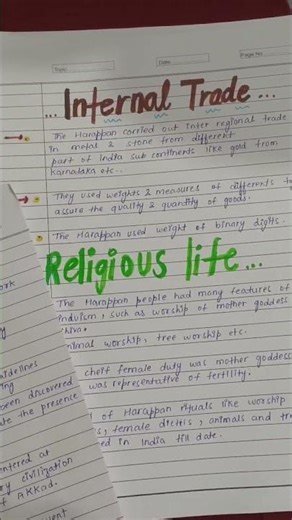 Topic
Date
Page No.
... Internal Trade ...
The Harappan carried out inter regional trade
in metal & stone from different
part of India sub continents like gold from
Karnataka etc..
They used weights & measures of differents to
assure the quality & quantity of goods.
The Harappan used weight of binary digits.
Religious life...
The Harappan people had many features of
induism, such as worship of mother goddess
hiva.
nimal worship, tree worship etc.
cheif female duty was mother goddess
was representative of fertility.
of Harappan rituals like worship
s, female dieties, animals and tre
ed in India till date.
ork
y
idelines
ing
een discovered
te the presence
entered at
ry civilization
f Akkad.
ment